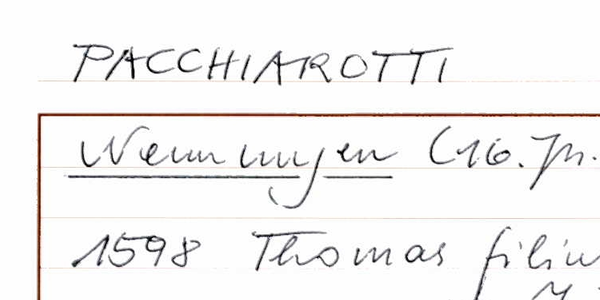 PACCHIAROTTI
Nennungen (16. Jh.
1598 Thomas filiu